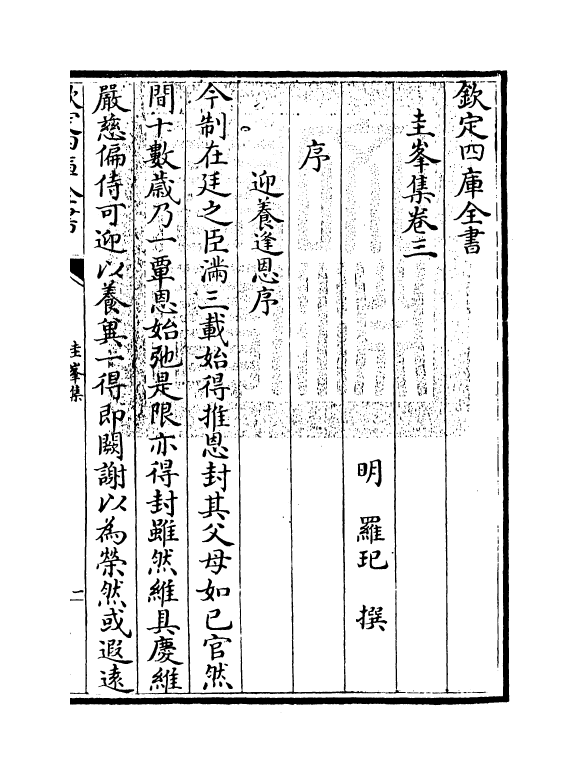 欽定四庫全書
圭峯集卷三
明 羅玘 撰
序
迎養逢恩序
今制在廷之臣滿三載始得推恩封其父母如己官然
間十數歲乃一覃恩始弛是限亦得封雖然維具慶維
嚴慈偏侍可迎以養兾一得即闕謝以為榮然或遐遠
欽定四庫全書
圭峯集